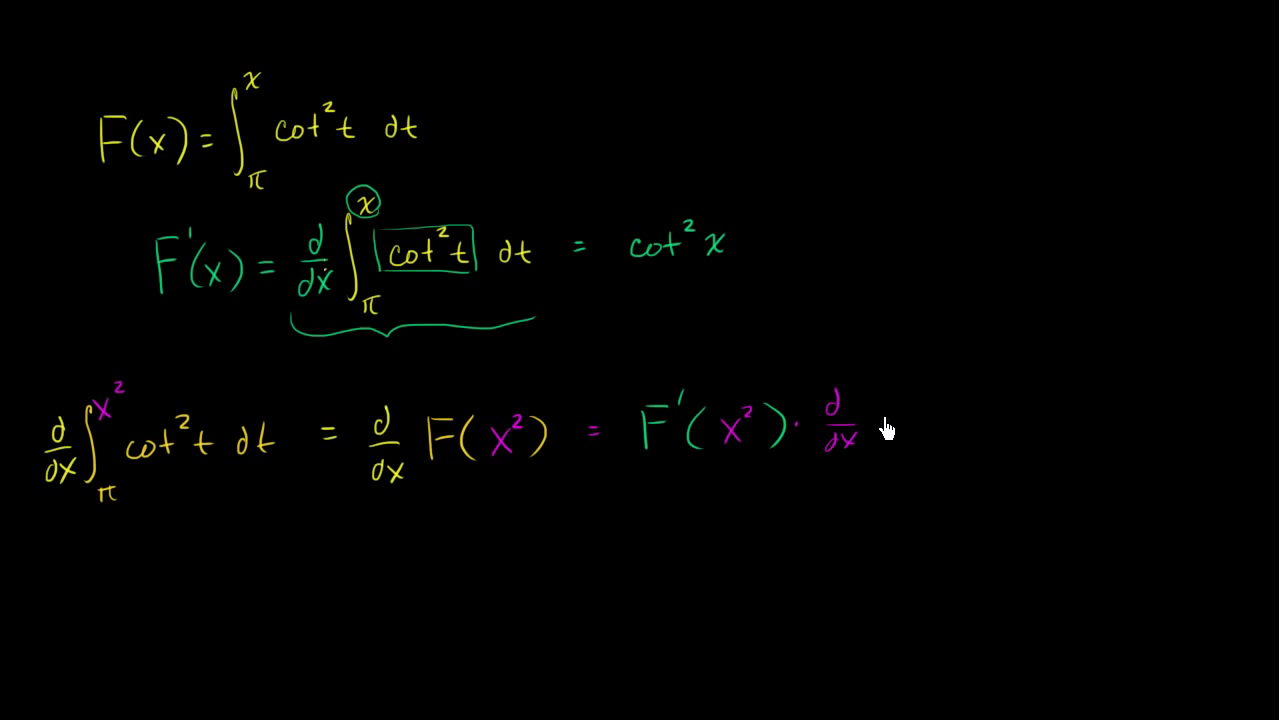 F(x) = ∫_π^x cot² t dt
F'(x) = d/dx ∫_π^x cot² t dt = cot² x
d/dx ∫_π^x² cot² t dt = d/dx F(x²) = F'(x²) · d/dx